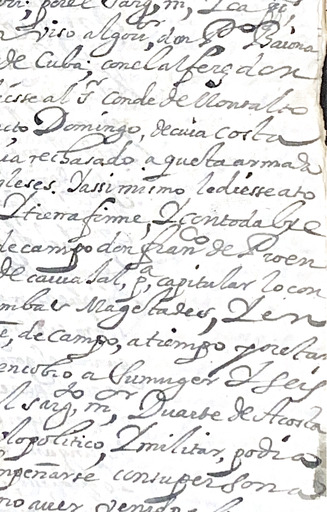 por el sarg, m, I ca
viso al gov,r don P,o Baiona
de Cuba; con el alferes don
diesse al s,r conde de Montalto
cto Domingo, de cuia costa
uia rechasado aquesta armada
gleses. I assi mismo le diesse a to
I tierra firme, I con toda bre
de campo don fran,co de Proen
de cauca sal, p,a capitular lo con
mbas Magestades, I en
de campo, a tiempo por estar
encobio a su muger I seis
l sarg,to m,r Duarte de Acosta
lo politico, I militar, podia
mpeñarse con su persona
no aver venido